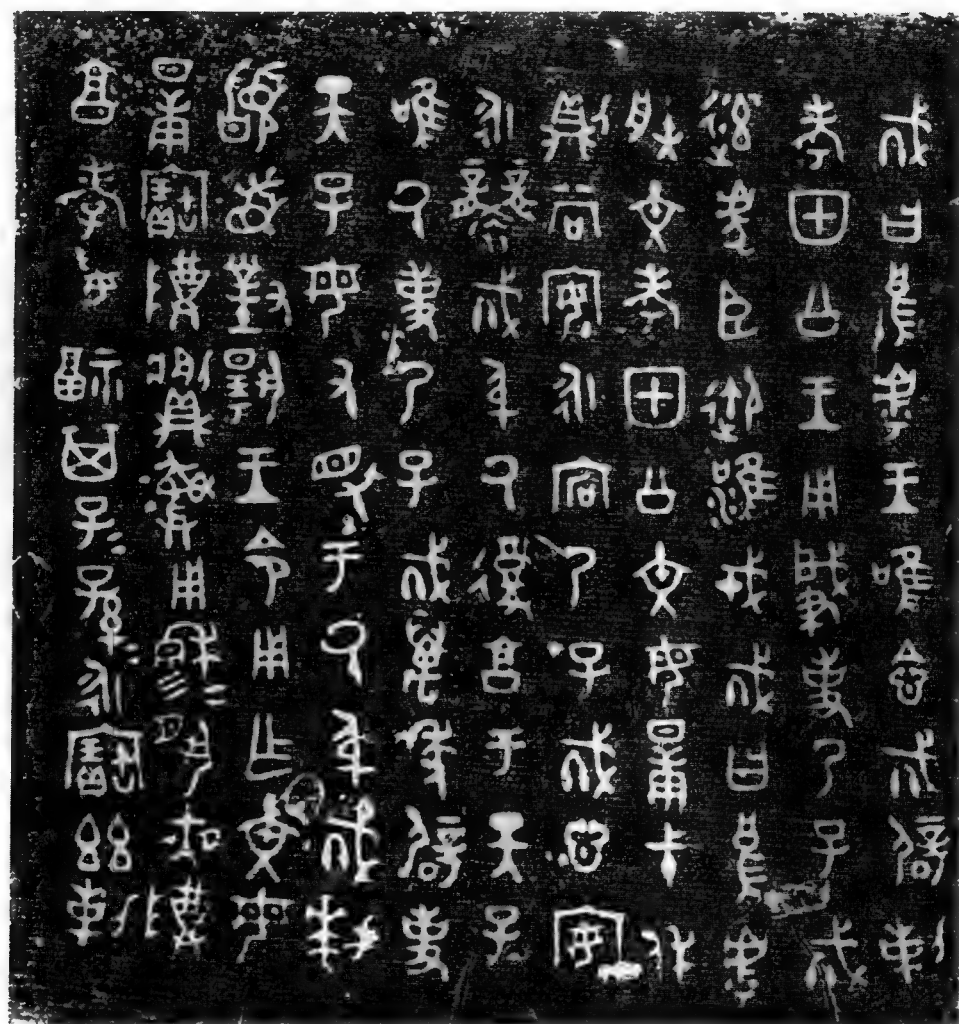 𢦚曰烏虖王唯念𢦚辟剌
考甲公王用肇事乃子𢦚
率虎臣御淮戎𢦚曰烏虖
朕文考甲公文母日庚弋休
則尚安永宕乃子𢦚心安
永襲𢦚身厥復享于天子
唯厥事乃子𢦚萬年辟事
天子毋有尤于厥身𢦚拜
稽首對揚王令用作文母
日庚寶尊彝用穆穆夙夜尊
享孝妥福其子子孫孫永寶茲剌